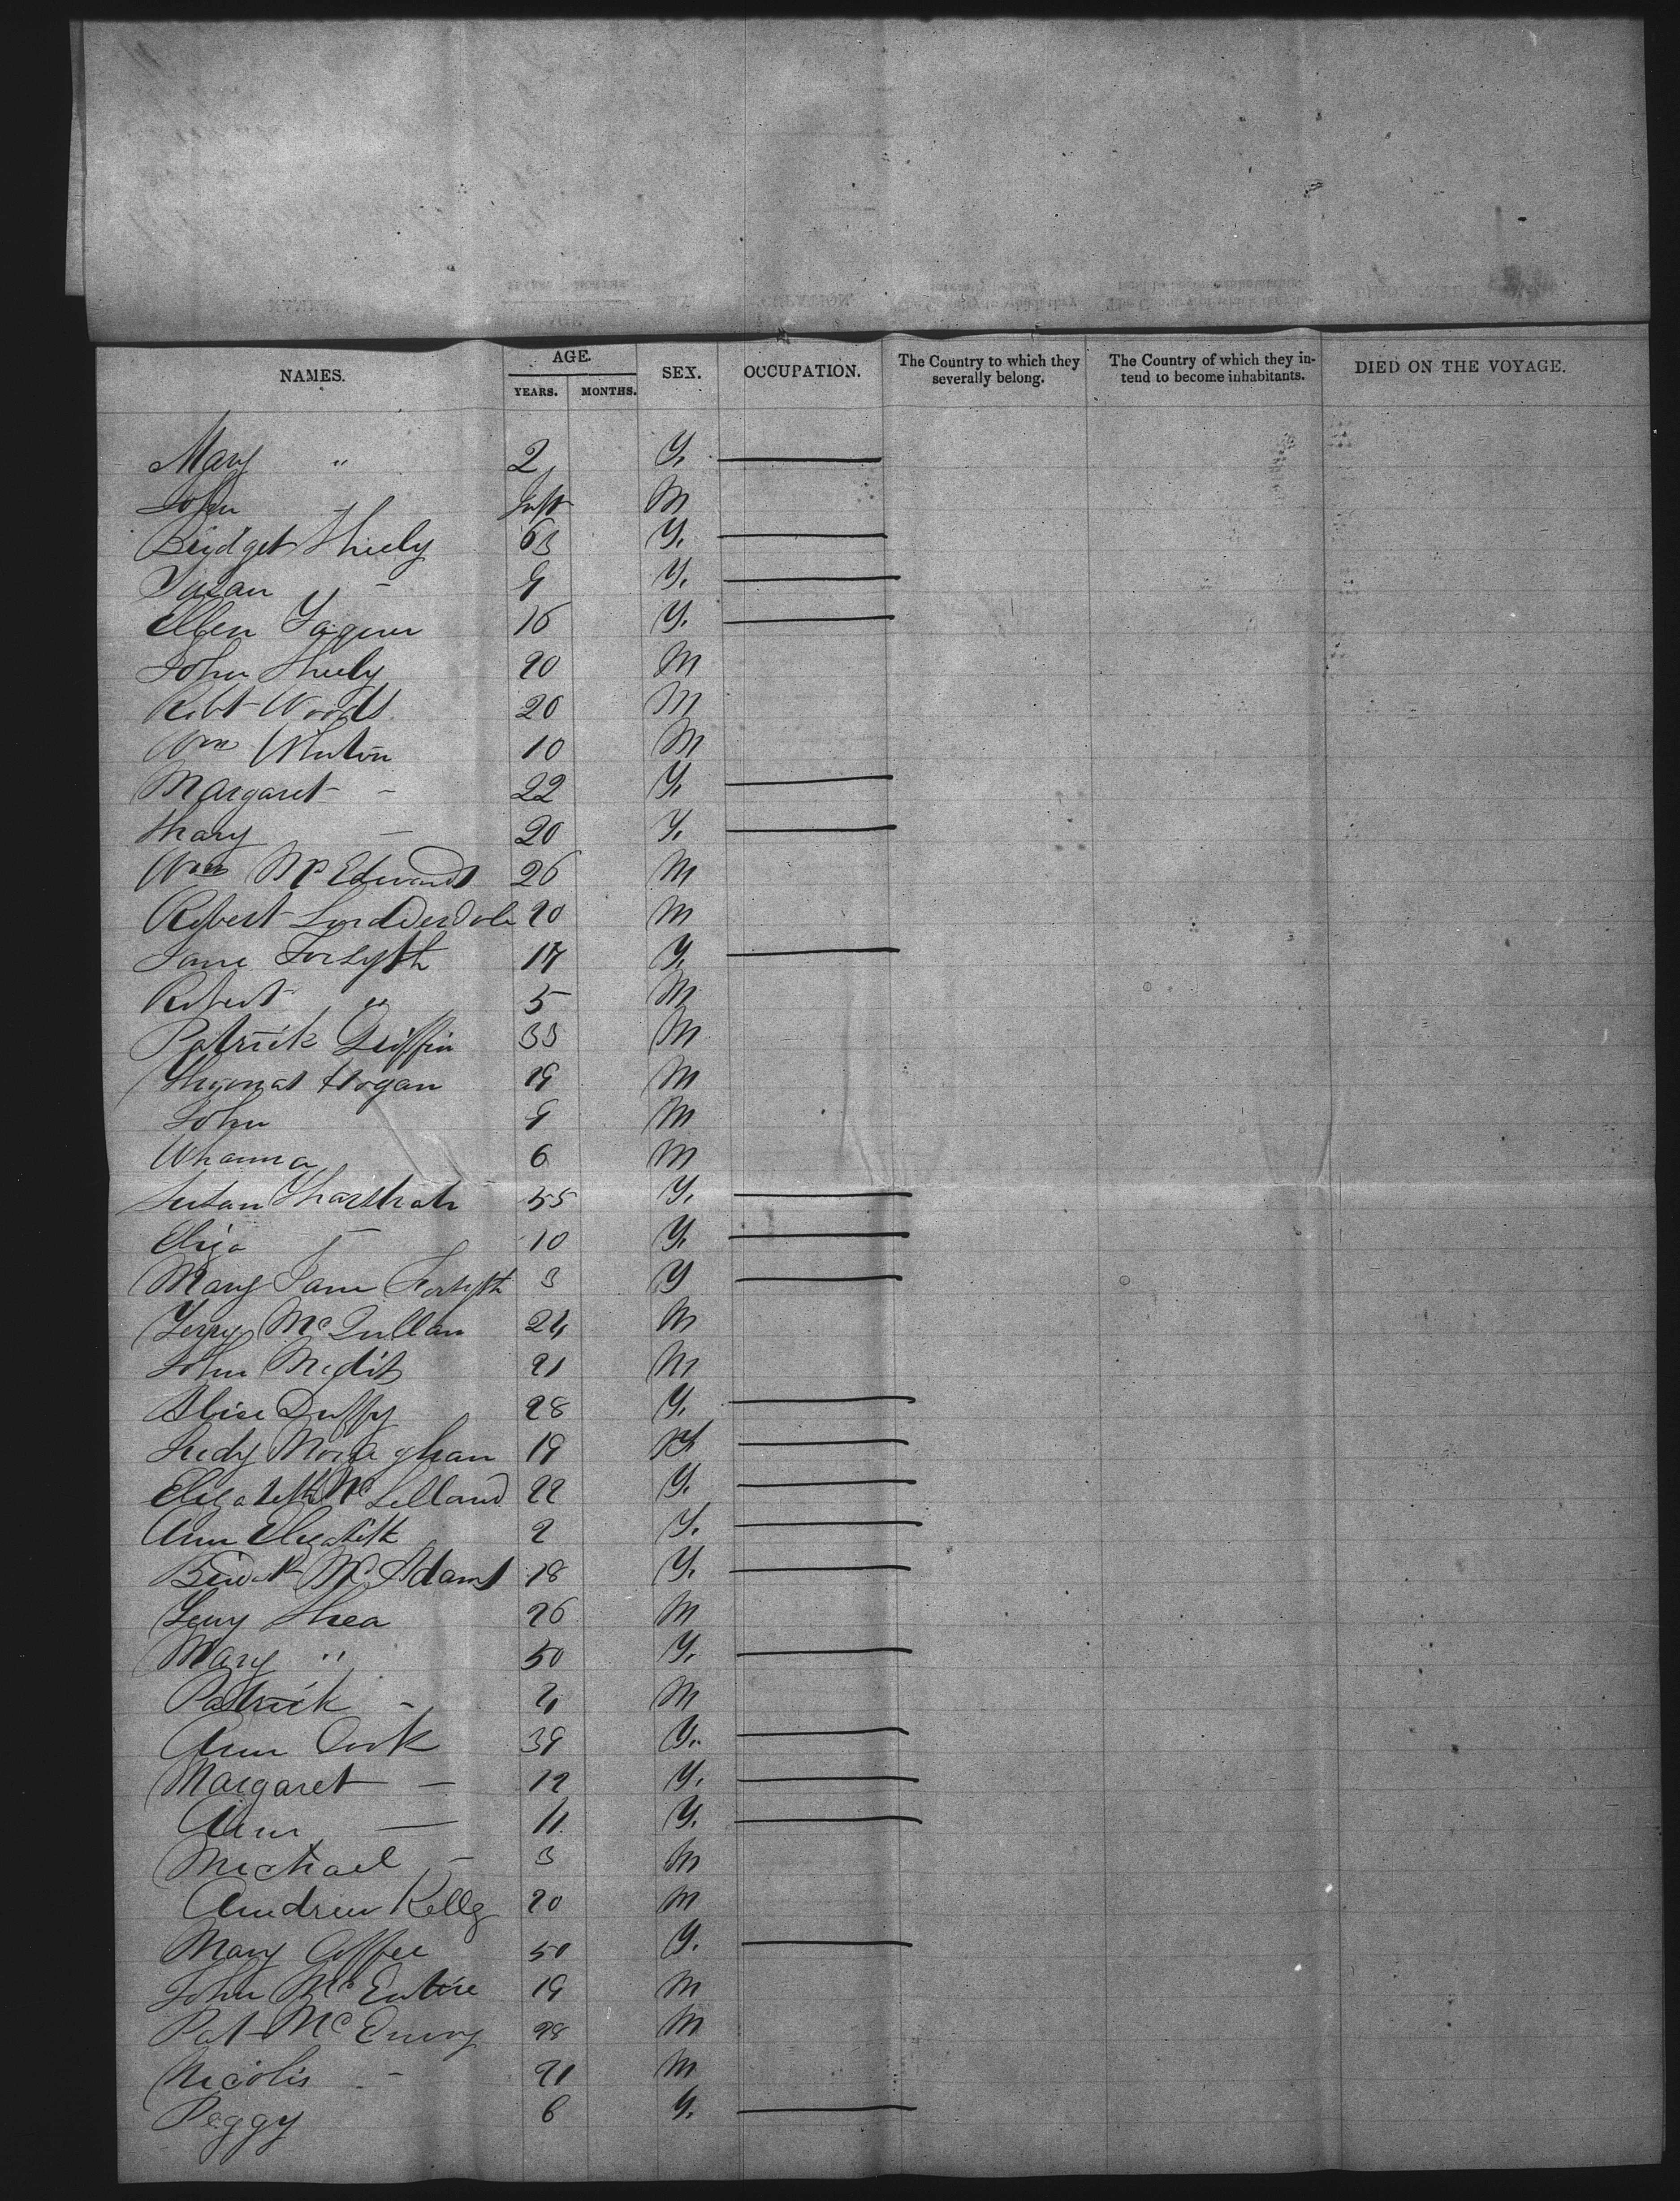 NAMES. AGE. YEARS. MONTHS. SEX. OCCUPATION. The Country to which they severally belong. The Country of which they intend to become inhabitants. DIED ON THE VOYAGE.
Mary " 2 F.
John - Inft M
Bridget Sheely 63 F.
Susan - 9 F.
Ellen 16 F.
John Sheely 20 M
Robt Woods 20 M
Wm 10 M
Margaret - 22 F.
Mary - 20 F.
Wm McEdwards 26 M
Robert 20 M
Jane Forsyth 17 F.
Robert " 5 M
Patrick Griffin 33 M
Thomas Hogan 19 M
John 9 M
6 M
Susan 55 F.
Eliza - 10 F.
Mary Jane Forsyth 3 F
Terry McQullan 24 M
John 21 M
Alice Duffy 28 F.
Judy 19 F
Elizabeth McLelland 22 F.
Ann Elizabeth 2 F.
McAdams 18 F.
Shea 26 M
Mary " 50 F.
Patrick - 4 M
Ann Cook 39 F.
Margaret - 12 F.
Ann - 11 F.
Michael - 3 M
Andrew Kelly 20 M
Mary Coffee 50 F.
John McEntire 19 M
Pat McEnroy 28 M
Nicolis - 21 M
Peggy 6 F.